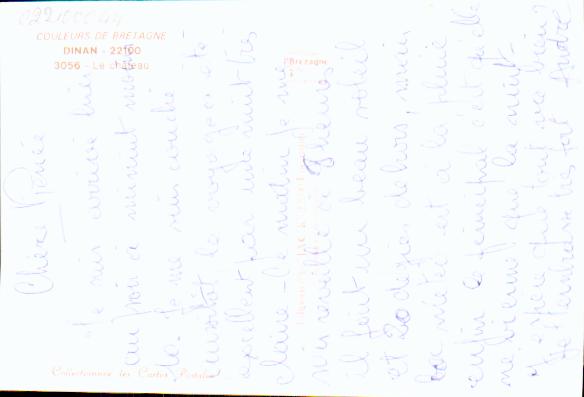 COULEURS DE BRETAGNE
DINAN - 22100
3056 - Le château
Bretagne
Collectionnez les Cartes Postales
Chère Renée
Je suis arrivée hier
au soir à minuit
je me suis couchée
aussitôt le voyage a été
excellent par une nuit très
claire - Ce matin je me
suis réveillée à 9 heures
il faisait un beau soleil
et 20 degrés dehors, mais
la météo est à la pluie
enfin le principal c'est qu'elle
ne vienne que la nuit -
J'espère que tout va bien
Je t'embrasse très fort André